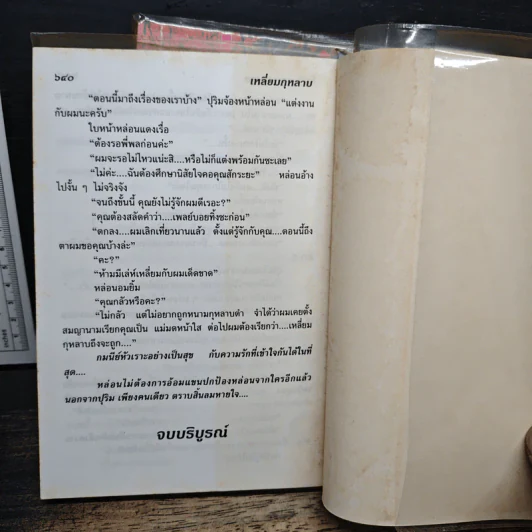 ๖๔๐
เหลี่ยมกุหลาบ
“ตอนนี้มาถึงเรื่องของเราบ้าง” ปุริมจ้องหน้าหล่อน “แต่งงาน
กับผมนะครับ”
ใบหน้าหล่อนแดงเรื่อ
“ต้องรอพี่พลก่อนค่ะ”
“ผมจะรอไม่ไหวแน่ะสิ....หรือไม่ก็แต่งพร้อมกันซะเลย”
“ไม่ค่ะ....ฉันต้องศึกษานิสัยใจคอคุณสักระยะ” หล่อนอ้าง
ไปงั้น ๆ ไม่จริงจัง
“จนถึงขั้นนี้ คุณยังไม่รู้จักผมดีเรอะ?”
“คุณต้องสลัดคำว่า....เพลย์บอยทิ้งซะก่อน”
“ตกลง....ผมเลิกเที่ยวนานแล้ว ตั้งแต่รู้จักกับคุณ....ตอนนี้ถึง
ตาผมขอคุณบ้างล่ะ”
“คะ?”
“ห้ามมีเล่ห์เหลี่ยมกับผมเด็ดขาด”
หล่อนอมยิ้ม
“คุณกลัวหรือคะ?”
“ไม่กลัว แต่ไม่อยากถูกหนามกุหลาบตำ จำได้ว่าผมเคยตั้ง
สมญานามเรียกคุณเป็น แม่มดหน้าใส ต่อไปผมต้องเรียกว่า....เหลี่ยม
กุหลาบถึงจะถูก....”
กมนีย์หัวเราะอย่างเป็นสุข กับความรักที่เข้าใจกันได้ในที่
สุด....
หล่อนไม่ต้องการอ้อมแขนปกป้องหล่อนจากใครอีกแล้ว
นอกจากปุริม เพียงคนเดียว ตราบสิ้นลมหายใจ....
จบบริบูรณ์